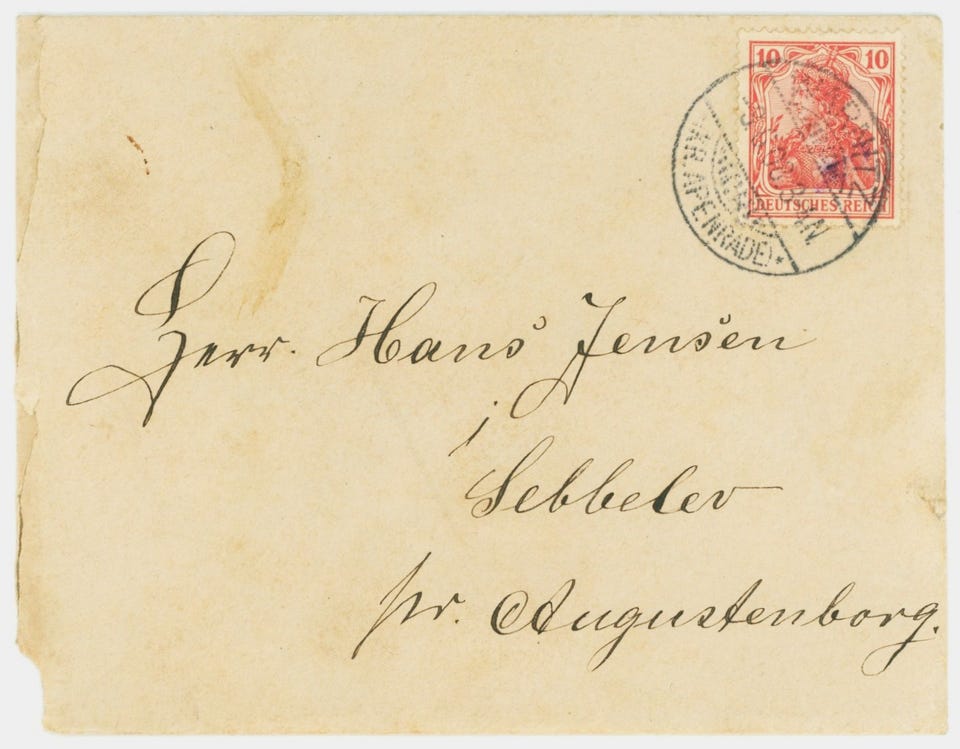 10 10
DEUTSCHES REICH
(KR. APENRADE) *
Herr. Hans Jensen
i
Sebbelev
pr. Augustenborg.